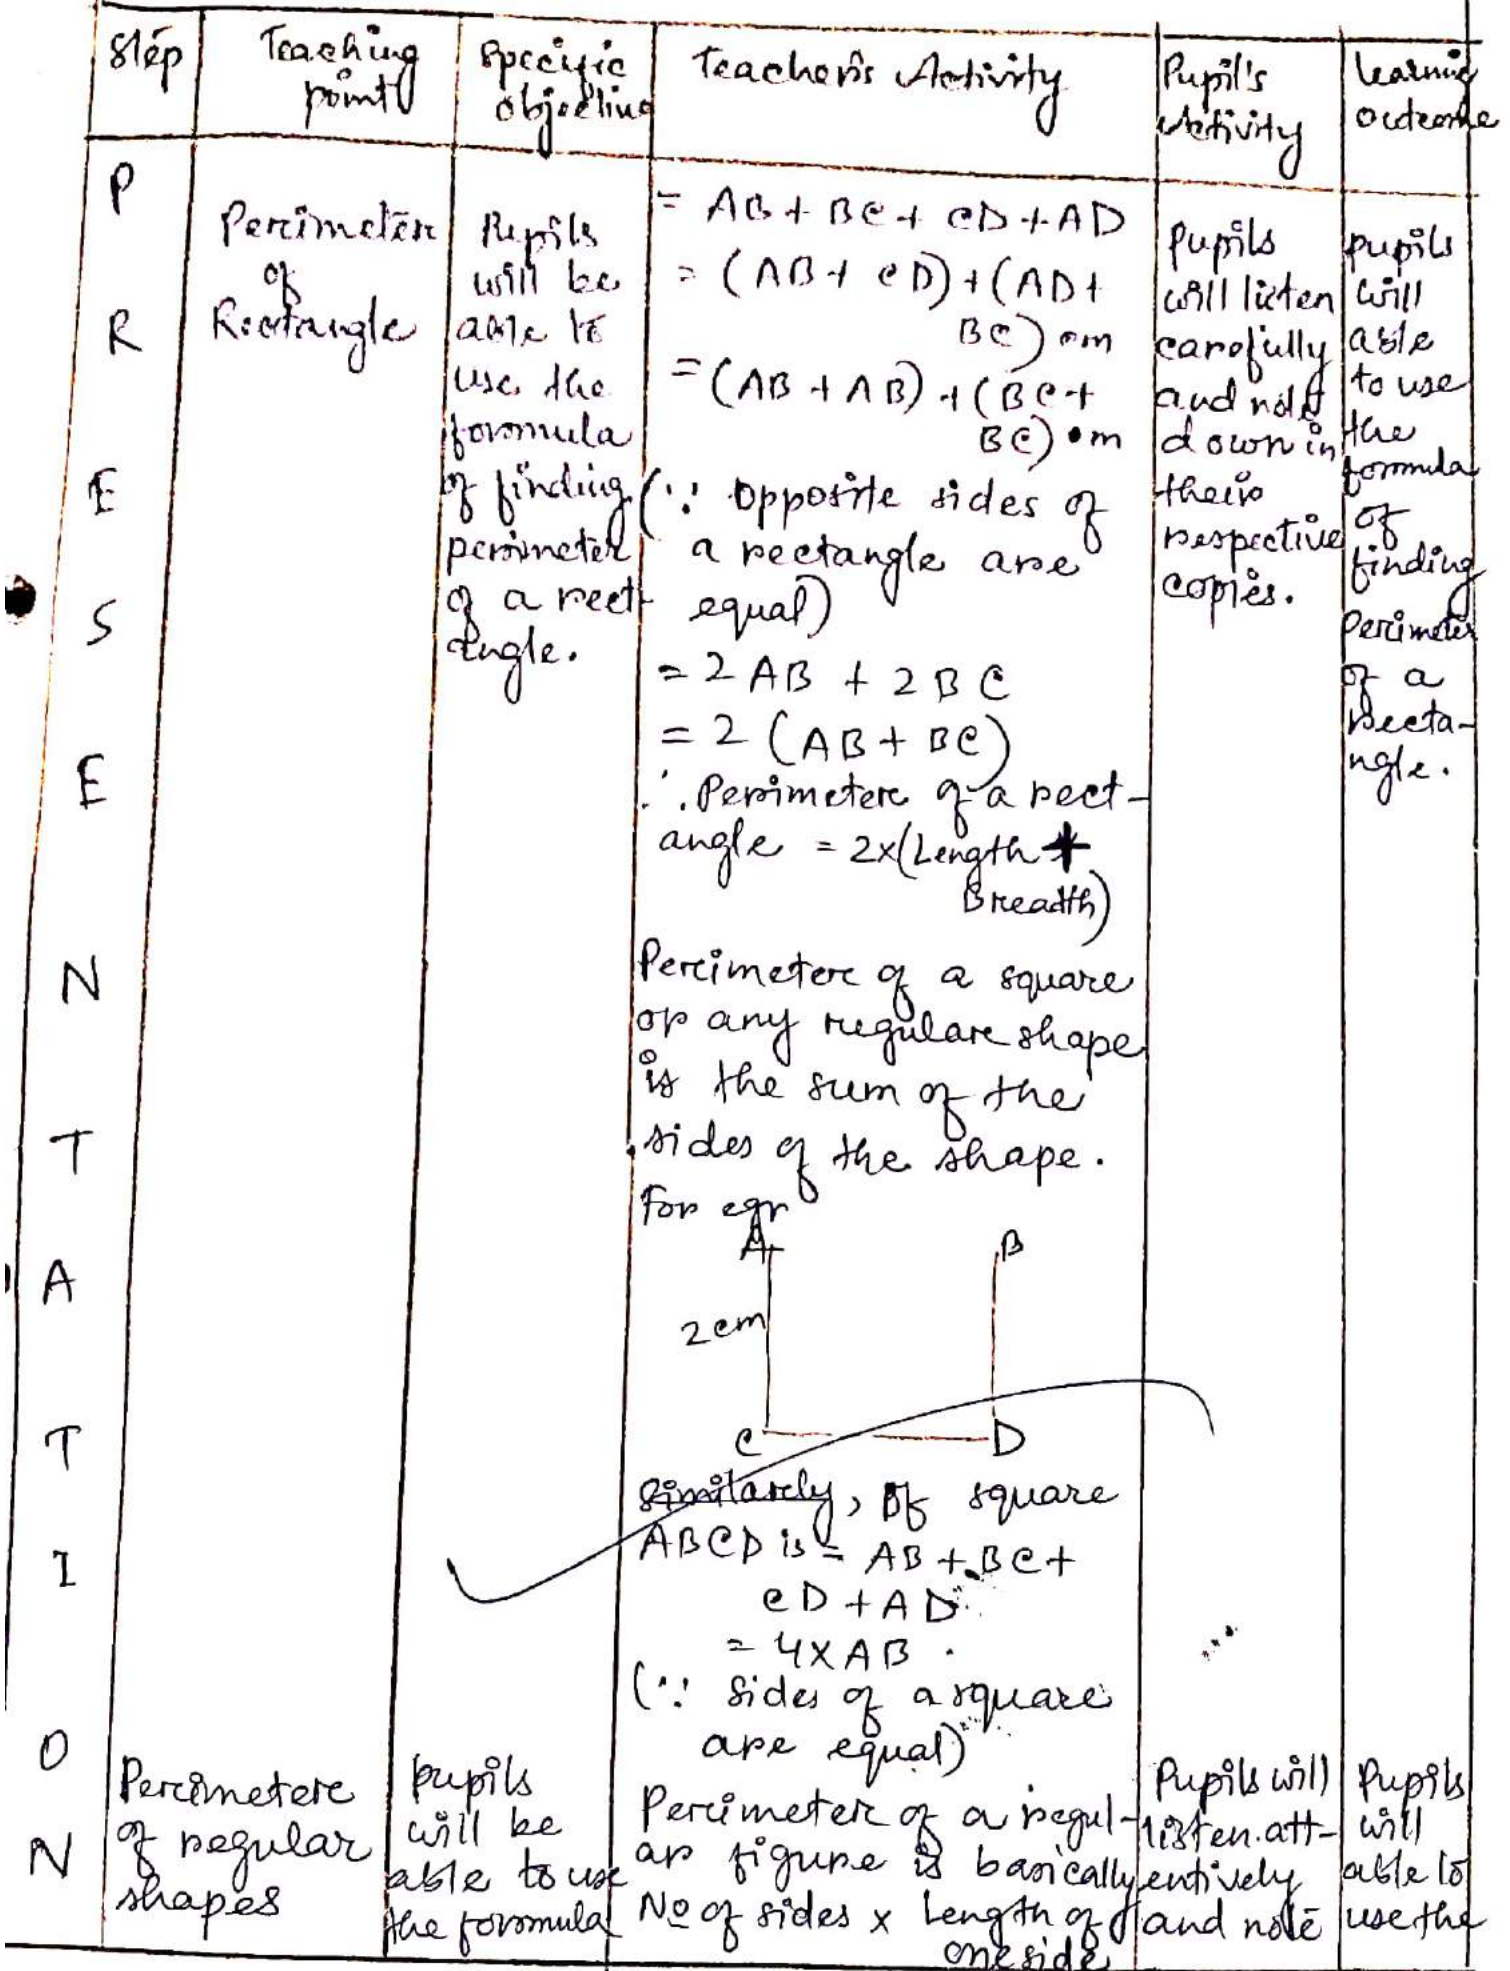 Step
Teaching
point
Specific
objective
Teacher's Activity
Pupil's
Activity
Learning
outcome
P
R
E
S
E
N
T
A
T
I
O
N
Perimeter
of
Rectangle
Pupils
will be
able to
use the
formula
of finding
perimeter
of a rect-
angle.
= AB + BC + CD + AD
= (AB + CD) + (AD +
BC) cm
= (AB + AB) + (BC +
BC) cm
(∵ opposite sides of
a rectangle are
equal)
= 2 AB + 2 BC
= 2 (AB + BC)
∴ Perimeter of a rect-
angle = 2x(Length +
Breadth)
Perimeter of a square
or any regular shape
is the sum of the
sides of the shape.
For eg
A
B
2 cm
C
D
Similarly, Of square
ABCD is = AB + BC +
CD + AD
= 4 X AB
(∵ Sides of a square
are equal)
Pupils
will listen
carefully
and note
down in
their
respective
copies.
pupils
will
able
to use
the
formula
of
finding
perimeter
of a
recta-
ngle.
Perimeter
of regular
shapes
pupils
will be
able to use
the formula
Perimeter of a regul-
ar figure is basically
No of sides x Length of
one side
Pupils will
listen att-
entively
and note
Pupils
will
able to
use the